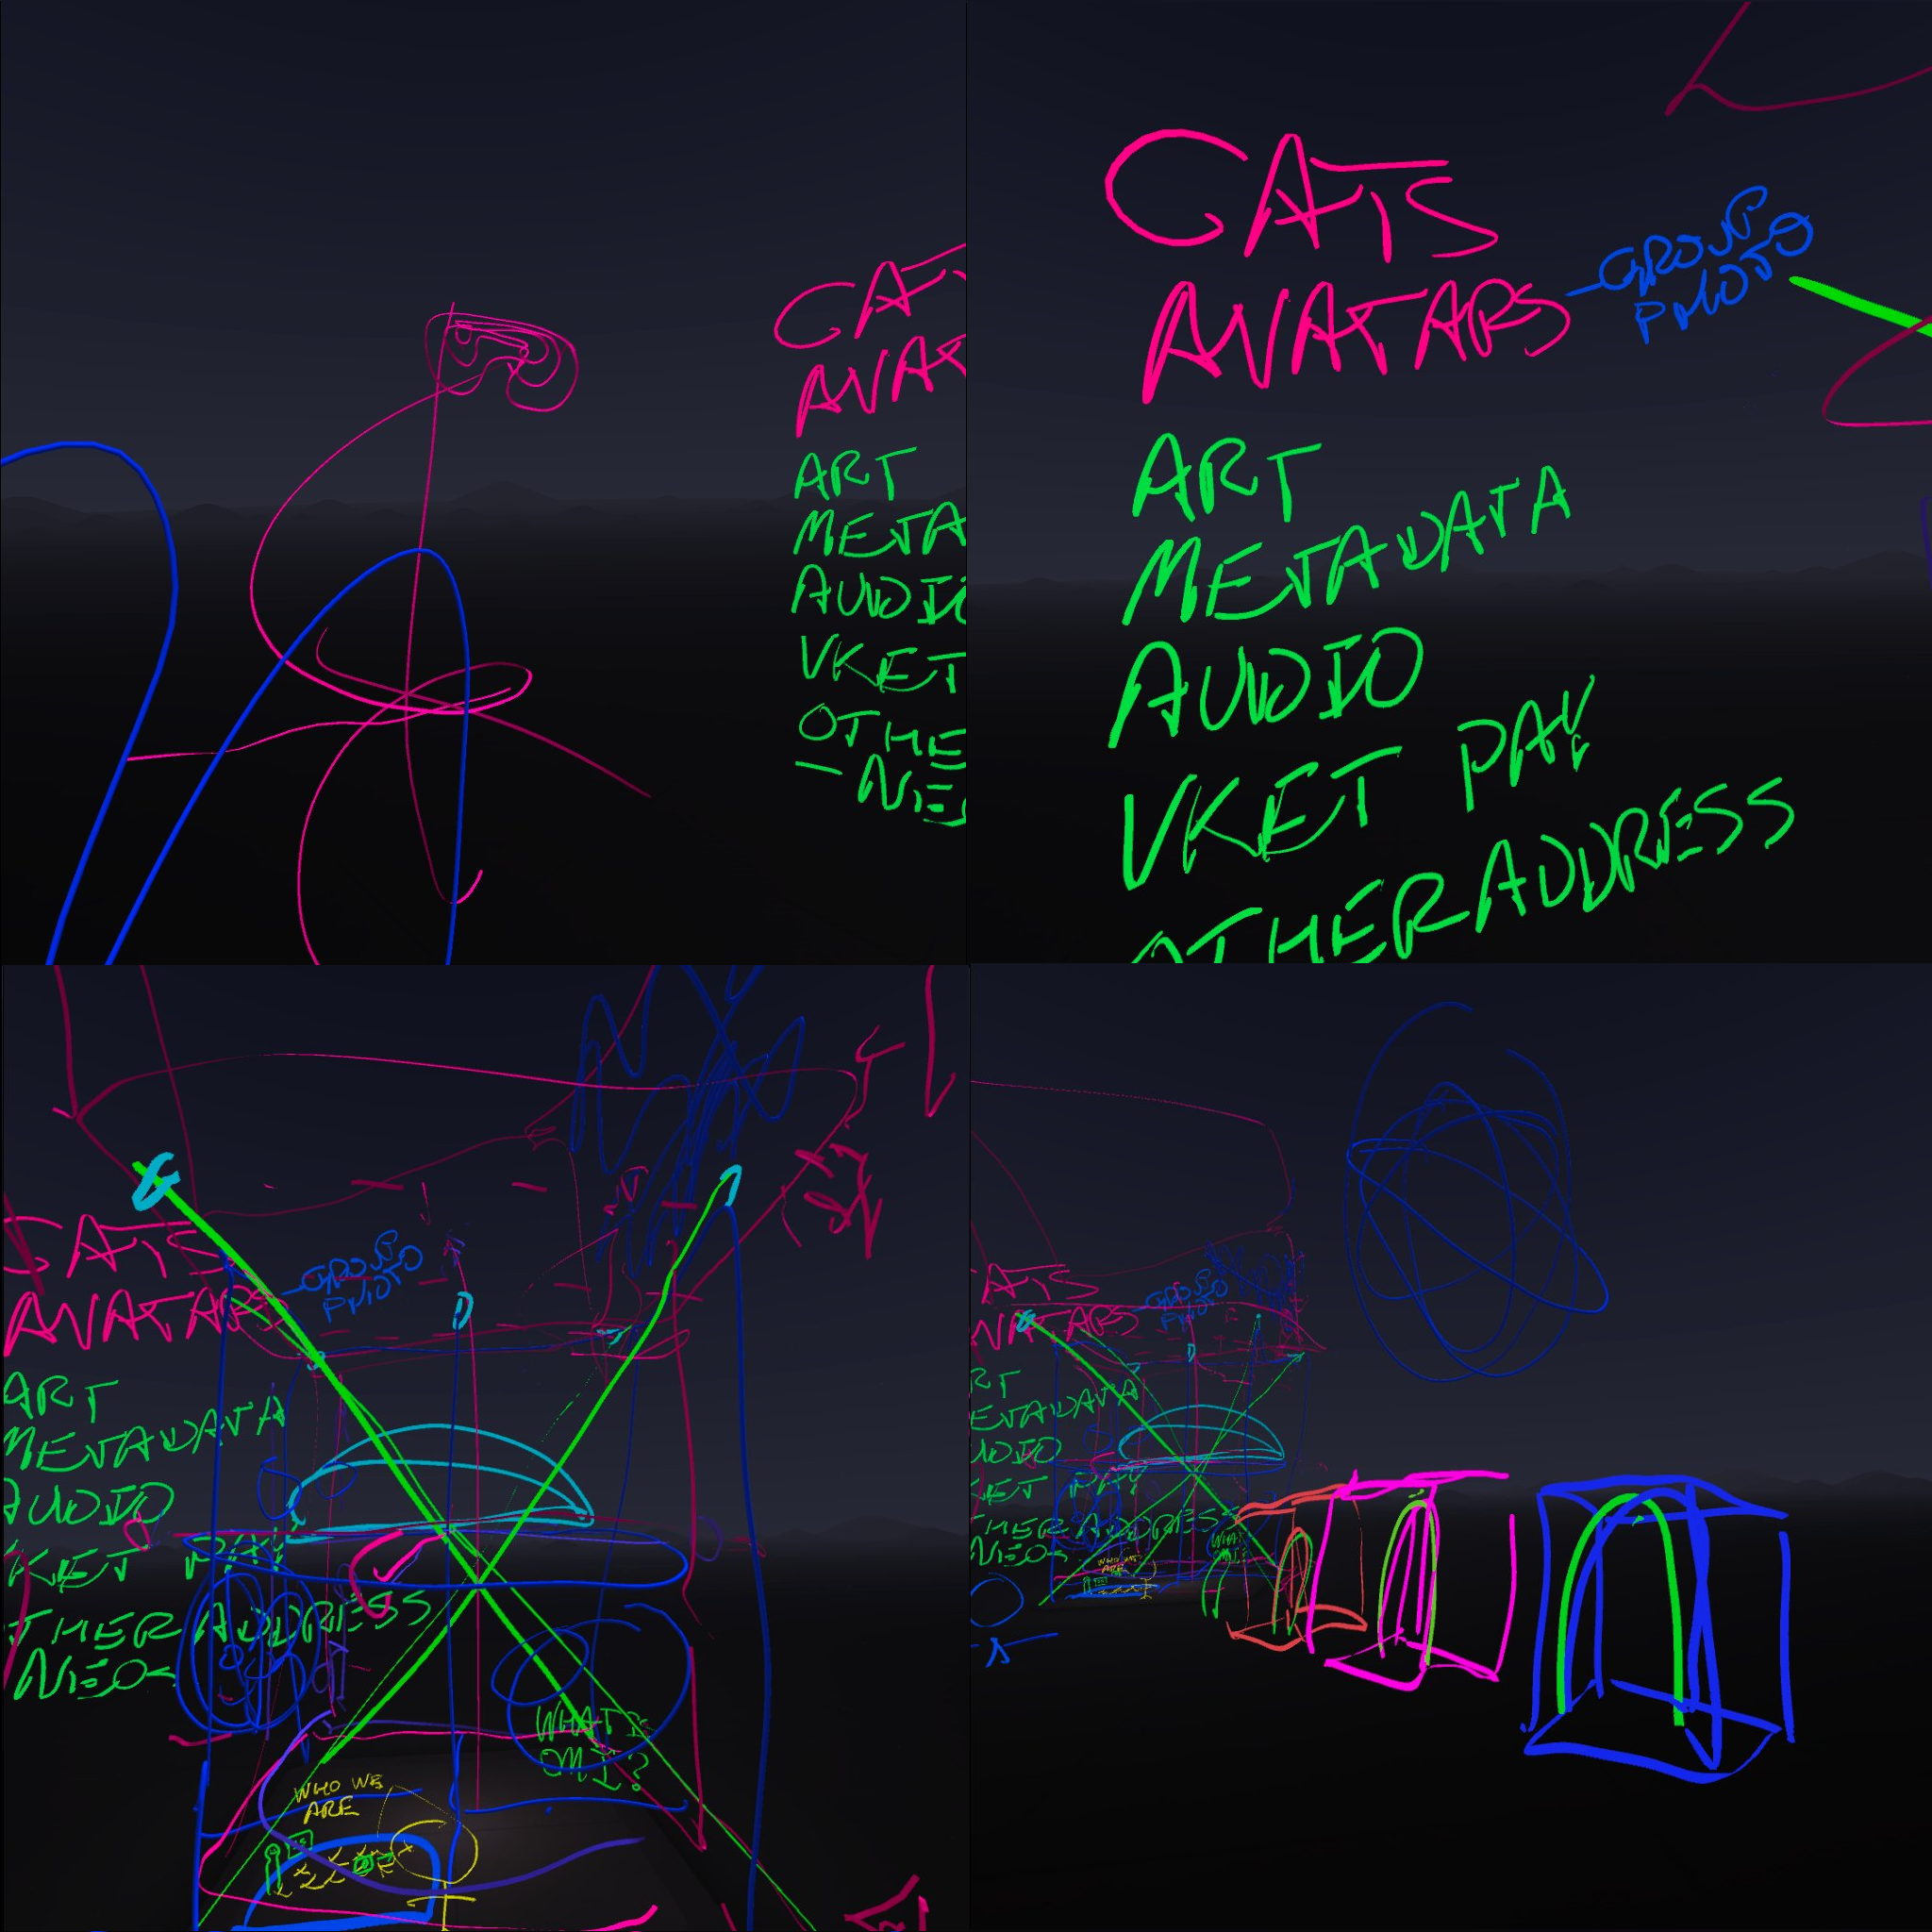 CA
AVA
ART
META
AUDIO
VKET
OTHE
- NEO
CATS
AVATARS
- GROUP
PHOTO
ART
METADATA
AUDIO
VKET PAV
OTHER ADDRESS
CATS
AVATARS
- GROUP
PHOTO
ART
METADATA
AUDIO
KET PAV
THER ADDRESS
NEOS
WHAT IS
OMI?
WHO WE
ARE
ATS
VATARS
- GROUP
PHOTO
RT
ETADATA
UDIO
KET PAV
THER ADDRESS
NEOS
WHO WE
ARE